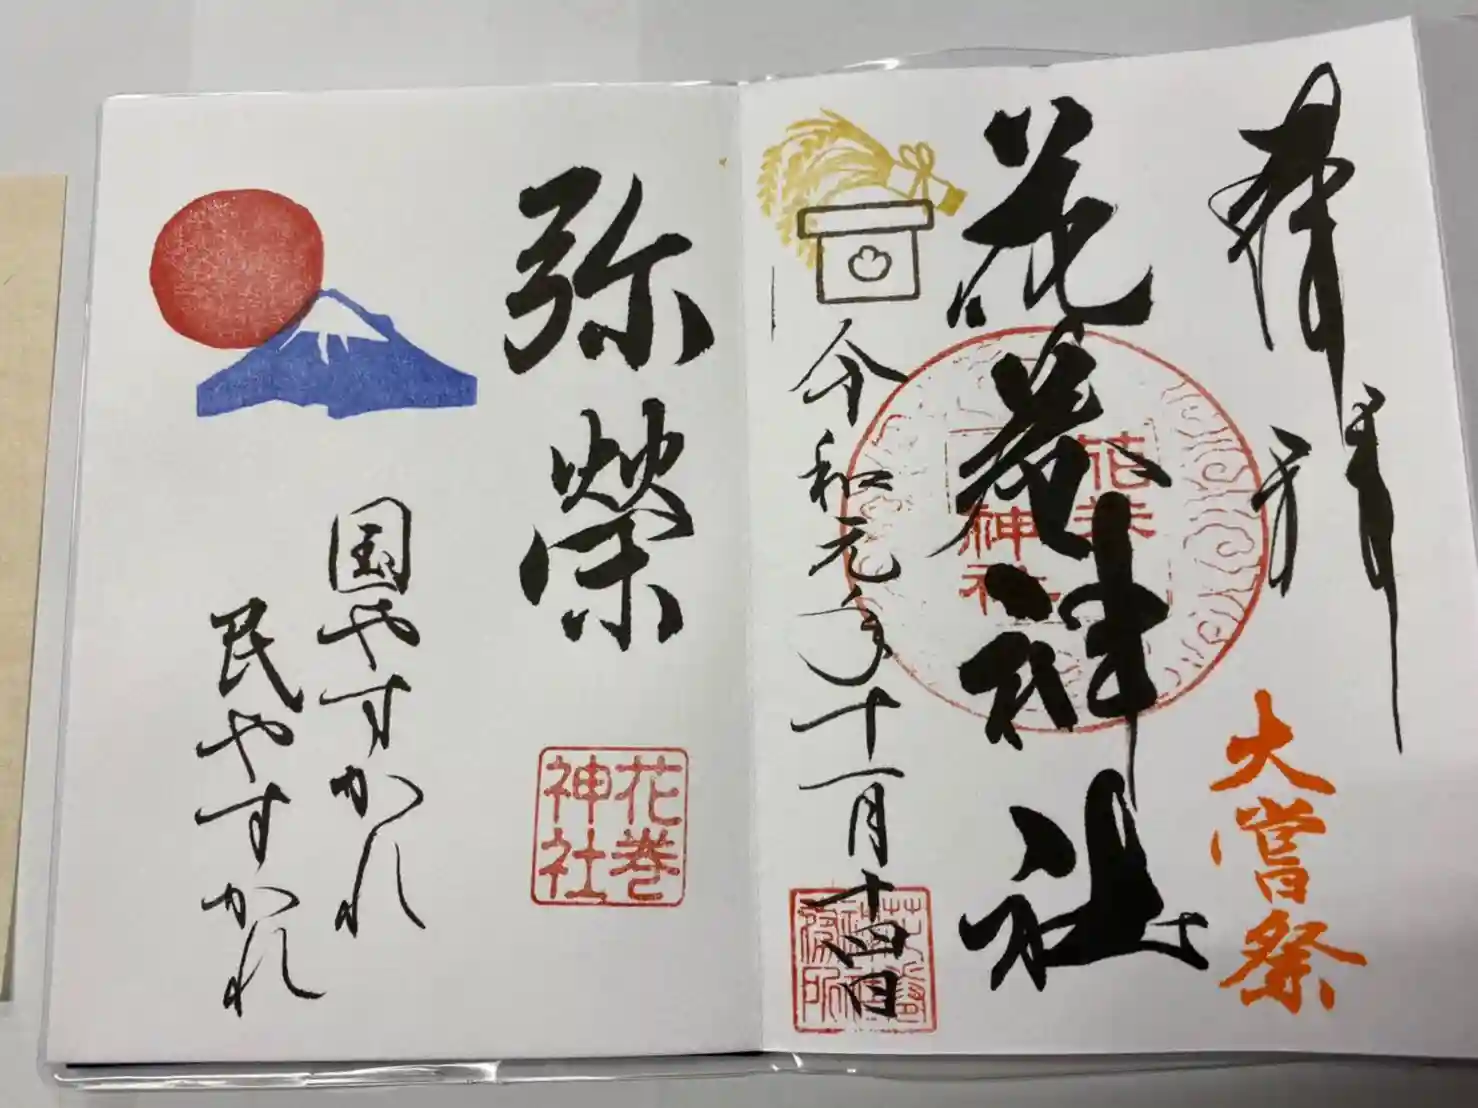 奉拝
大嘗祭
花巻神社
花巻
神社
令和元年十一月十四日
弥榮
花巻
神社
国やすかれ
民やすかれ